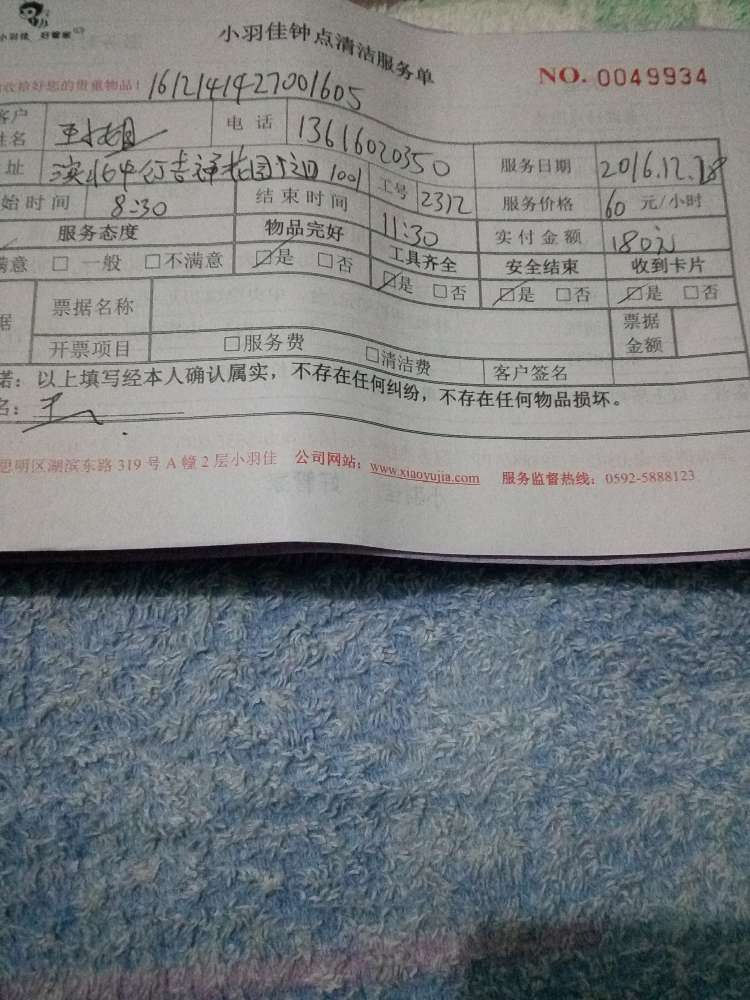 小羽佳 好管家
小羽佳钟点清洁服务单
NO. 0049934
收拾好您的贵重物品! 1612141427001605
客户姓名 电话 13616020350 服务日期 2016.12.18
址 1001 工号 2312 服务价格 60 元/小时
始时间 8:30 结束时间 11:30 实付金额 180元
服务态度 物品完好 工具齐全 安全结束 收到卡片
满意 □ 一般 □不满意 ☑是 □否 ☑是 □否 ☑是 □否 ☑是 □否
据 票据名称 票据金额
开票项目 □服务费 □清洁费 客户签名
诺：以上填写经本人确认属实，不存在任何纠纷，不存在任何物品损坏。
名：
思明区湖滨东路 319 号 A 幢 2 层小羽佳 公司网站：www.xiaoyujia.com 服务监督热线：0592-5888123